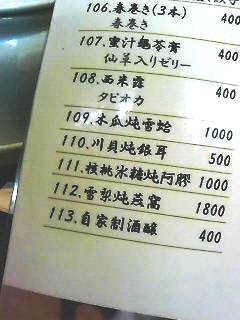 106.春巻き(3本) 400
春巻き
107.蜜汁亀苓膏 400
仙草入りゼリー
108.西米露 400
タピオカ
109.木瓜炖雪蛤 1000
110.川貝炖銀耳 500
111.核桃氷糖炖阿膠 1000
112.雪梨炖燕窩 1800
113.自家制酒釀 400